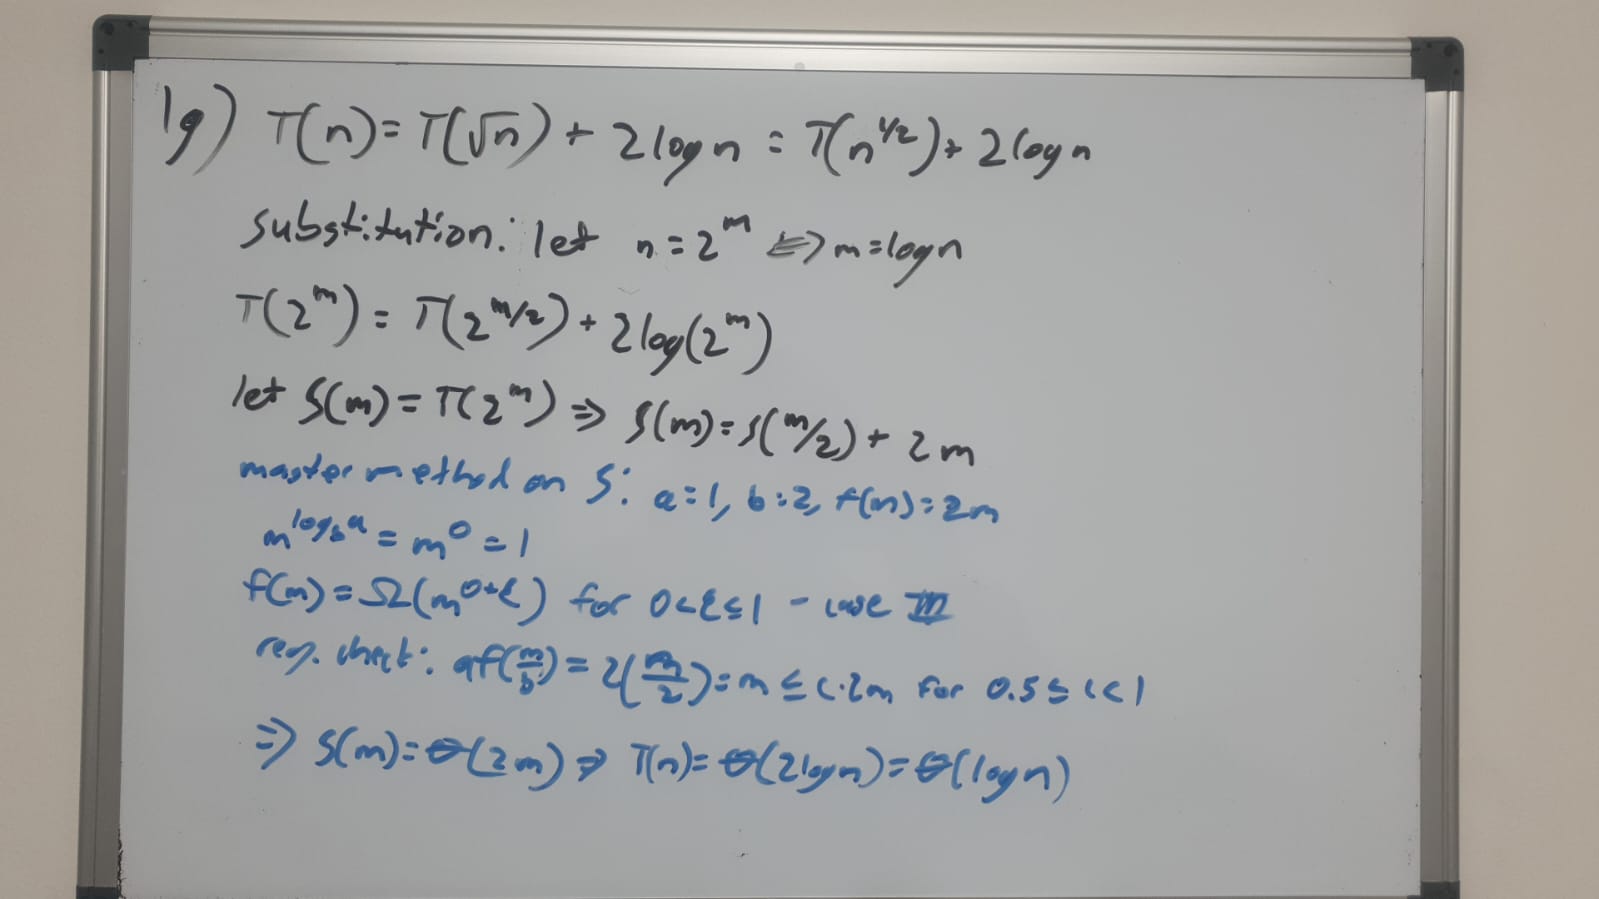 1g) T(n) = T(√n) + 2logn = T(n^1/2) + 2logn
substitution: let n = 2^m <=> m = logn
T(2^m) = T(2^m/2) + 2log(2^m)
let S(m) = T(2^m) => S(m) = S(m/2) + 2m
master method on S: a=1, b=2, f(m)=2m
m^log_b a = m^0 = 1
f(m) = Ω(m^0+ε) for 0<ε≤1 - case III
reg. check: af(m/b) = 2(m/2) = m ≤ c·2m for 0.5 ≤ c<1
=> S(m) = Θ(2m) => T(n) = Θ(2logn) = Θ(logn)